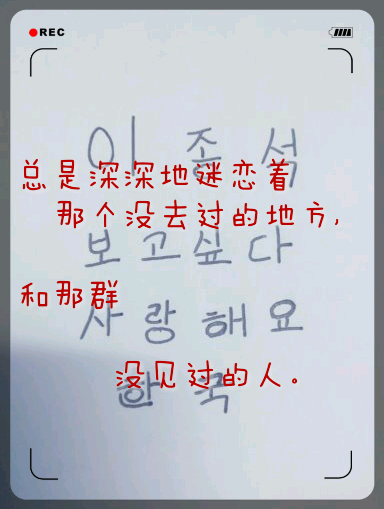 REC
이 종 석
总是深深地迷恋着
那个没去过的地方,
보 고 싶 다
和那群
사 랑 해 요
没见过的人。
한 국